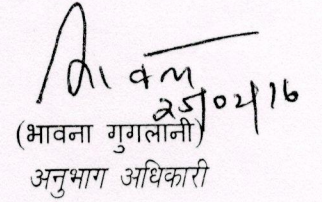 25/02/16
(भावना गुगलानी)
अनुभाग अधिकारी